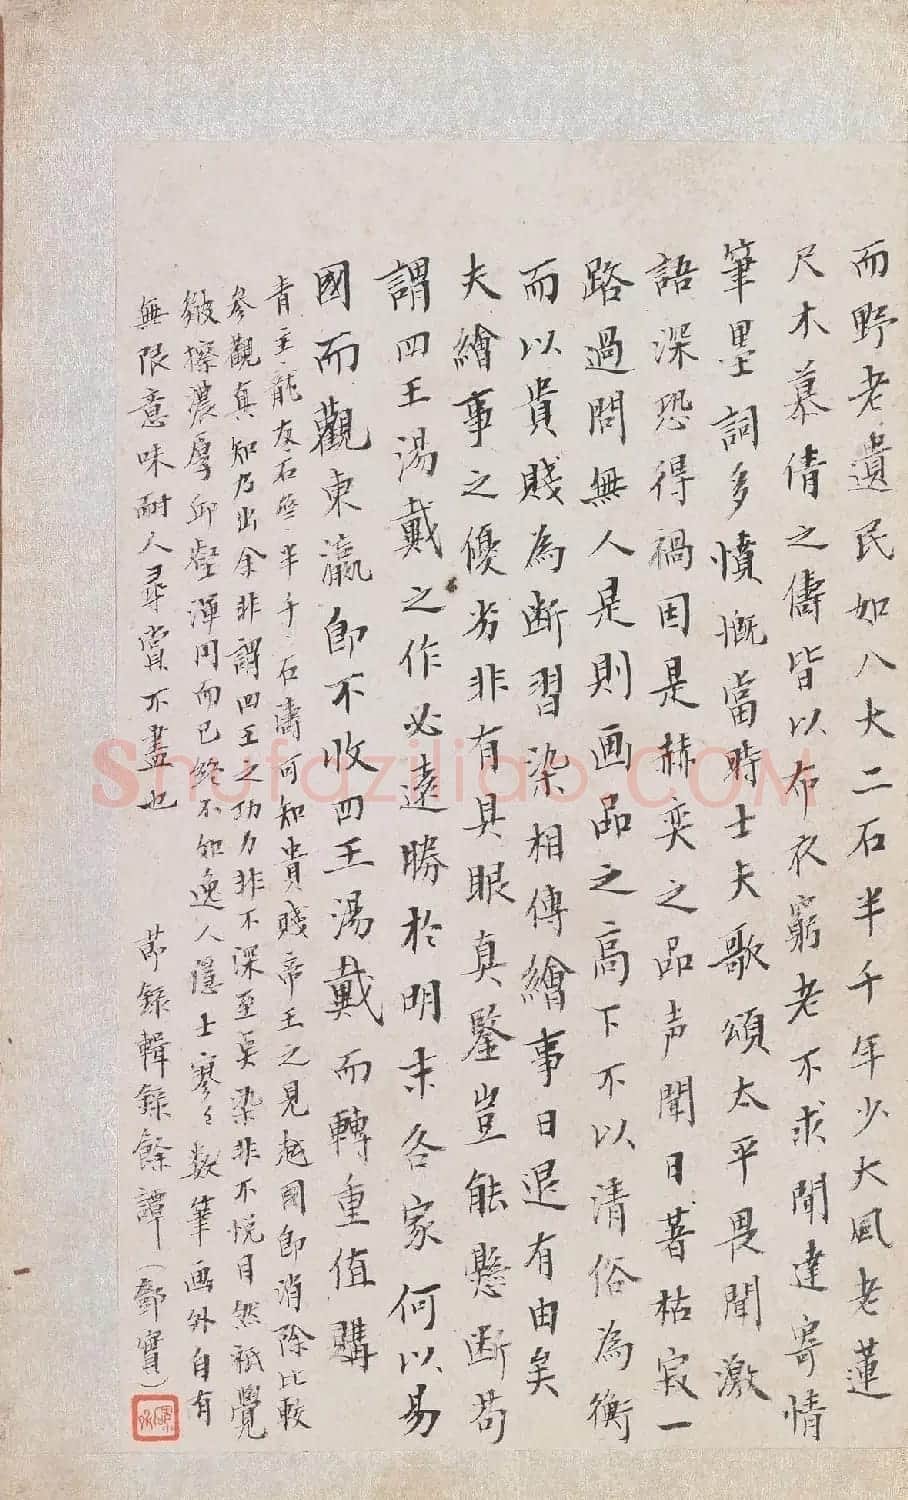 而野老遺民如八大二石半千年少大風老蓮
尺木慕倩之儔皆以布衣窮老不求聞達寄情
筆墨詞多憤慨當時士夫歌頌太平畏聞激
語深恐得禍因是赫奕之品声聞日著枯寂一
路過問無人是則画品之高下不以清俗為衡
而以貴賤為断習染相傳繪事日退有由矣
夫繪事之優劣非有具眼真鑒豈能懸断苟
謂四王湯戴之作必遠勝於明末各家何以易
國而觀東瀛即不收四王湯戴而轉重值購
青主龍友石谿半千石濤可知貴賤帝王之見越國即消除比較
參觀真知乃出余非謂四王之功力非不深至臭染非不悅目然祇覺
皴擦濃厚邱壑渾円而已終不如逸人隱士寥々数筆画外自有
無限意味耐人尋賞不盡也 節錄輯錄餘譚（鄧實）
Shufaziliao.COM